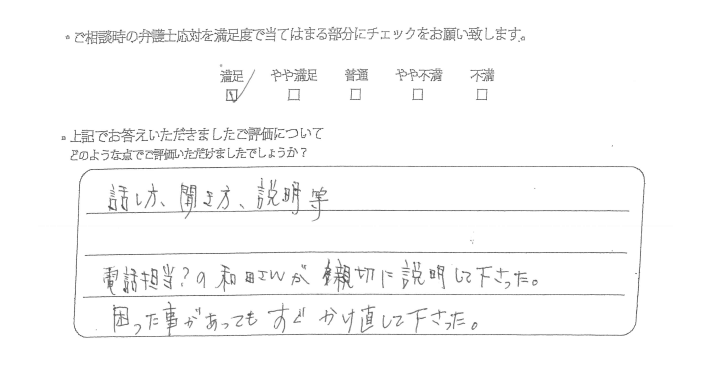 。ご相談時の弁護士応対を満足度で当てはまる部分にチェックをお願い致します。
満足 やや満足 普通 やや不満 不満
。上記でお答えいただきましたご評価について
どのような点でご評価いただけましたでしょうか？
話し方、聞き方、説明等
電話担当?の和田さんが 親切に説明して下さった。
困った事があっても すぐ かけ直して下さった。